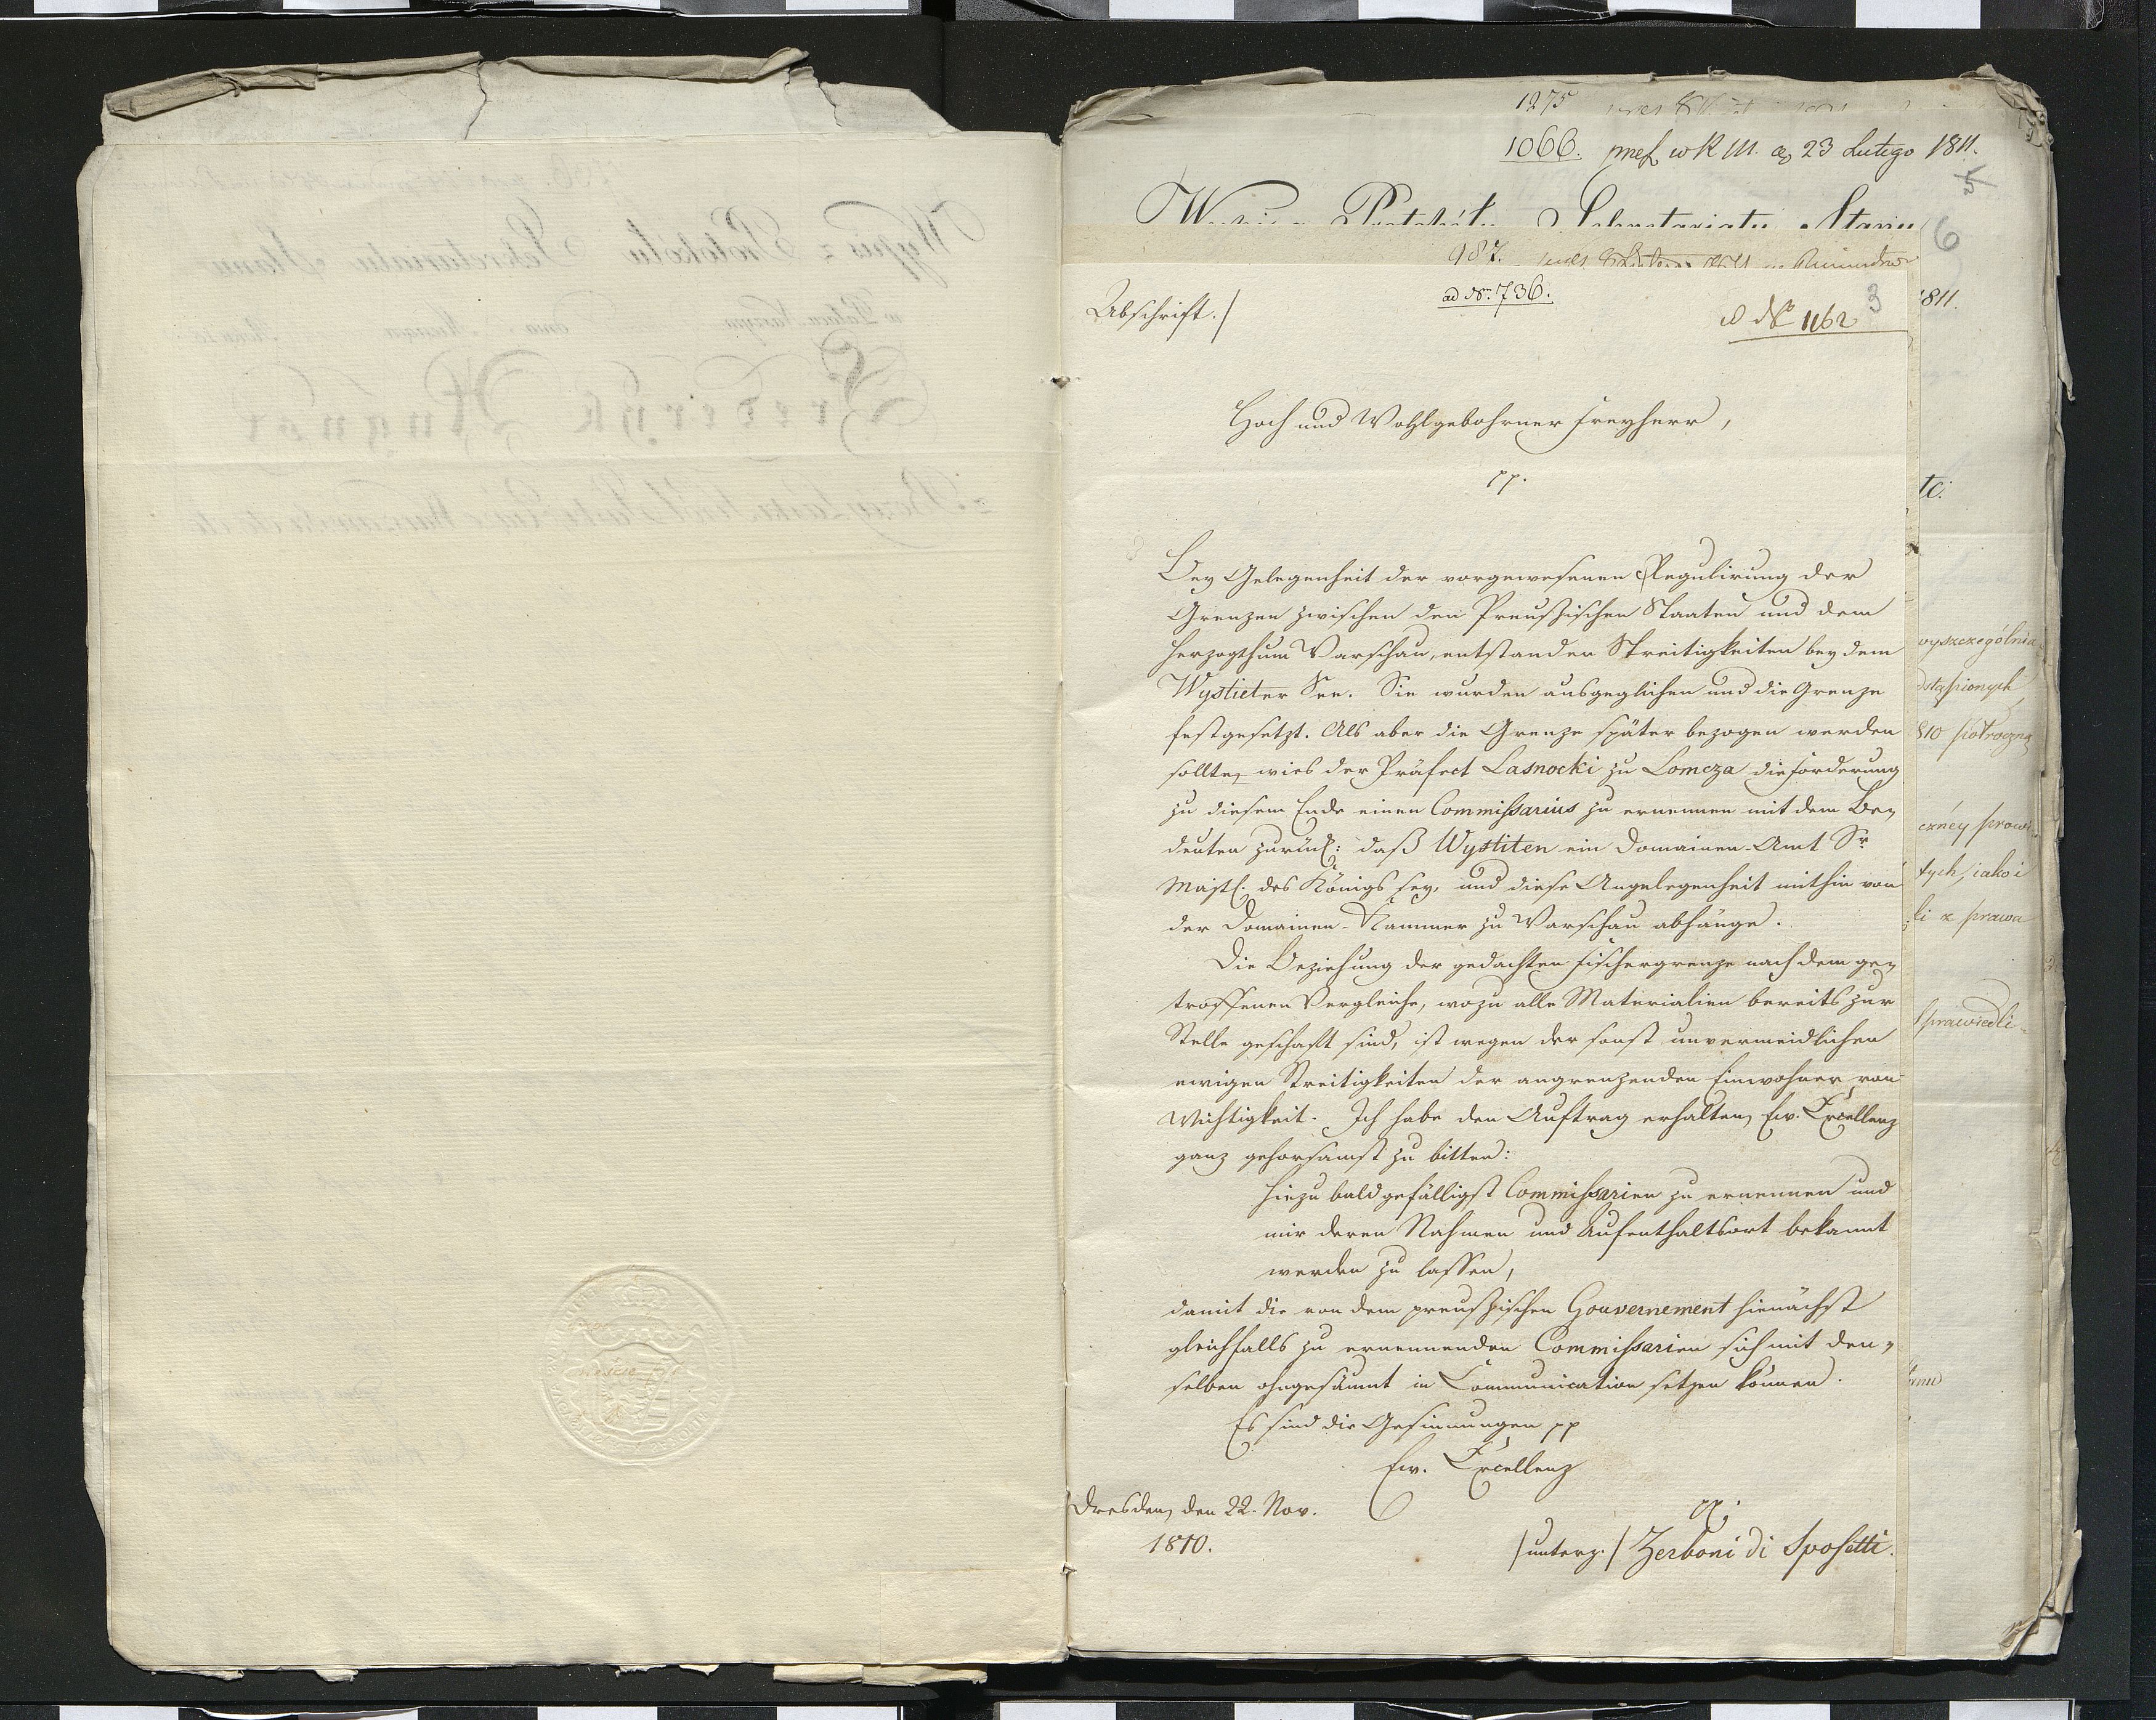 1275
1066. 23 Lutego 1811.
5
6
987.
Abschrift./
ad Nrm 736.
1162
3
1811.
Hoch und Wohlgebohrner Freyherr,
pp.
tc.
Bey Gelegenheit der vorgewesenen Regulirung der
Grenzen zwischen den Preußischen Staaten und dem
Herzogthum Warschau, entstanden Streitigkeiten bey dem
Wystieter See. Sie wurden ausgeglichen und die Grenze
festgesetzt. Als aber die Grenze später bezogen werden
sollte, wies der Präfect Lasnocki zu Lomcza die Forderung
zu diesem Ende einen Commissarius zu ernennen mit dem Be-
deuten zurück: daß Wystiten ein Domainen-Amt Sr.
Majst. des Königs sey, und diese Angelegenheit mithin von
der Domainen-Kammer zu Warschau abhänge.
Die Beziehung der gedachten Fischergrenze nach dem ge-
troffenen Vergleiche, wozu alle Materialien bereits zur
Stelle geschaft sind, ist wegen der sonst unvermeidlichen
ewigen Streitigkeiten der angrenzenden Einwohner von
Wichtigkeit. Ich habe den Auftrag erhalten, Ew. Excellenz
ganz gehorsamst zu bitten:
hiezu bald gefälligst Commissarien zu ernennen und
mir deren Nahmen und Aufenthaltsort bekannt
werden zu lassen,
damit die von dem preußischen Gouvernement hienächst
gleichfalls zu ernennenden Commissarien sich mit den-
selben ohngesäumt in Communication setzen können.
Es sind die Gesinnungen pp
Ew. Excellenz
Dresden, den 22. Nov.
1810.
pp.
/unterz./ Zerboni di Sposetti.
wyszczególnia
dstąpionych
810
czney
tych, iako i
li z prawa
Sprawiedli-